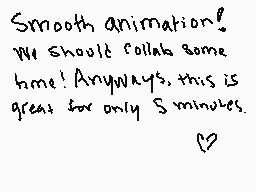 Smooth animation!
We should collab some
time! Anyways, this is
great for only 5 minutes.
♡